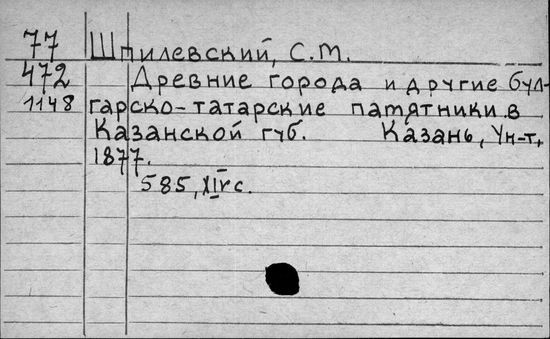 77 Шпилевский, С.М.
472 Древние города и другие бул-
1148 гарско-татарские памятники в
Казанской губ. Казань, Ун-т,
1877.
585, XIV с.